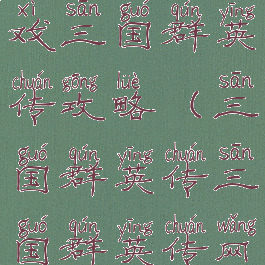 xì sān guó qún yīng
戏三国群英
chuán gōng lüè sān
传攻略（三
guó qún yīng chuán sān
国群英传三
guó qún yīng chuán wǎng
国群英传网